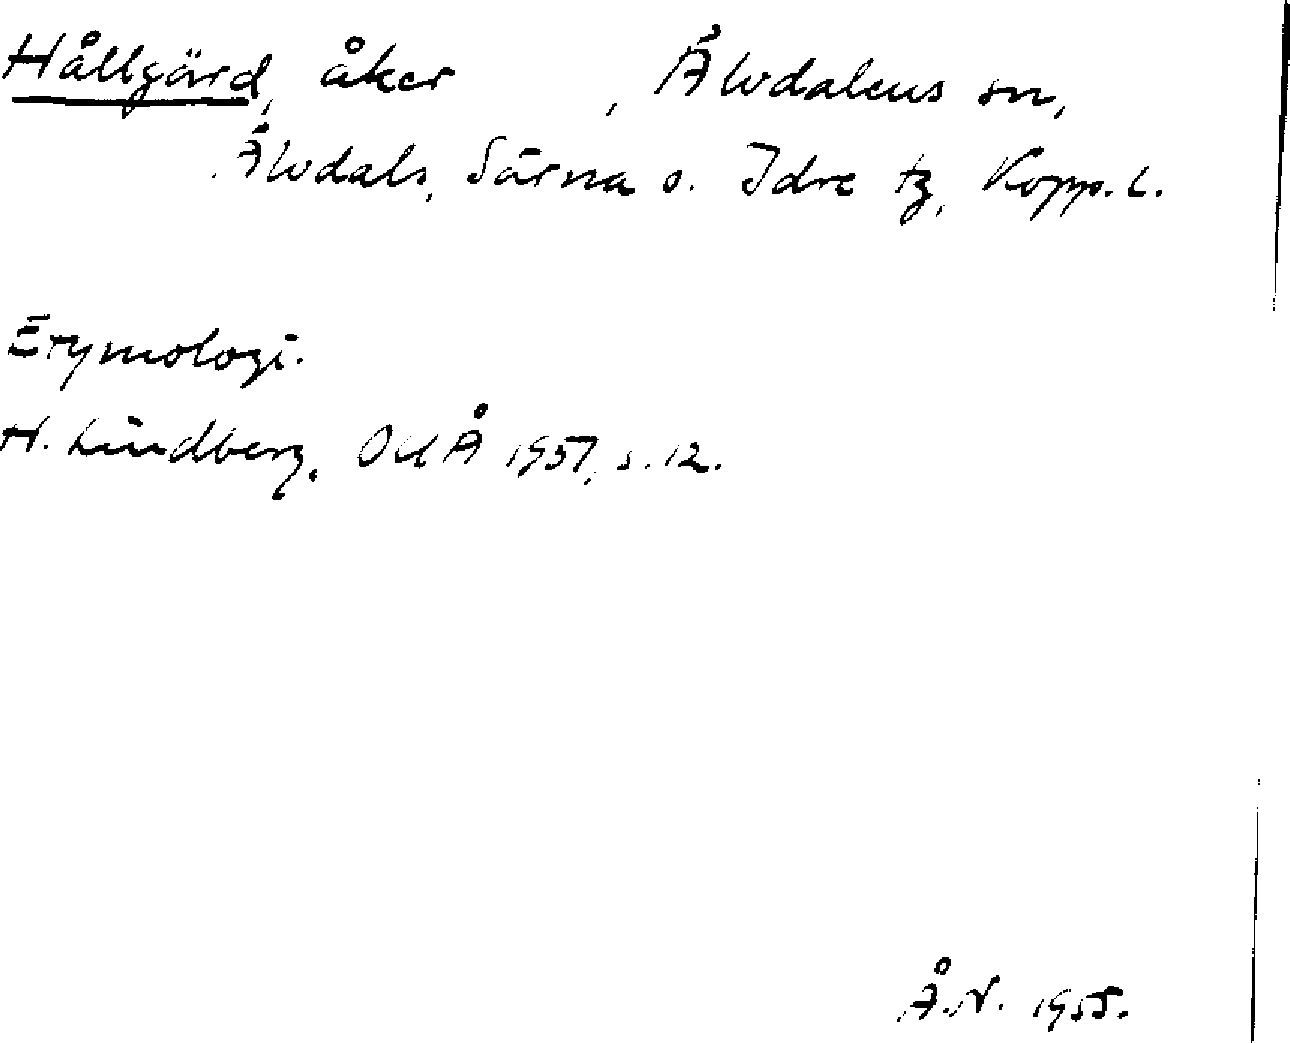 Hållgärd, åker , Älvdalens sn,
Älvdals, Särna o. Idre tg, Kopp. l.
Etymologi.
H. Lindberg, OUÅ 1951, s. 12.
Å.N. 1955.